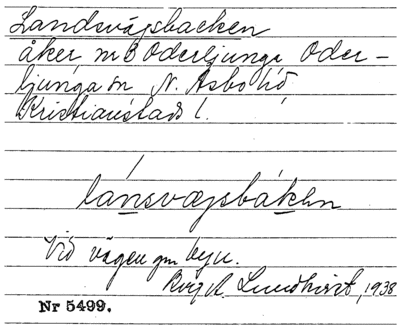 Landsvägsbacken
åker nr 6 Oderljunga Oder-
ljunga sn N. Åsbo hd
Kristianstads l.
lánsvægsbákən
Vid vägen gm byn.
Lundkvist, 1938
Nr 5499.